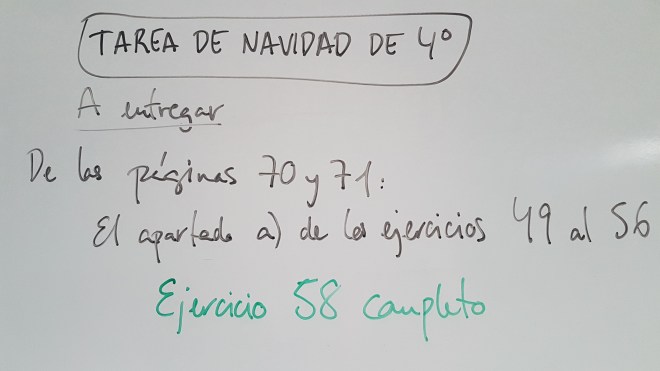 TAREA DE NAVIDAD DE 4º
A entregar
De las páginas 70 y 71:
El apartado a) de los ejercicios 49 al 56
Ejercicio 58 completo